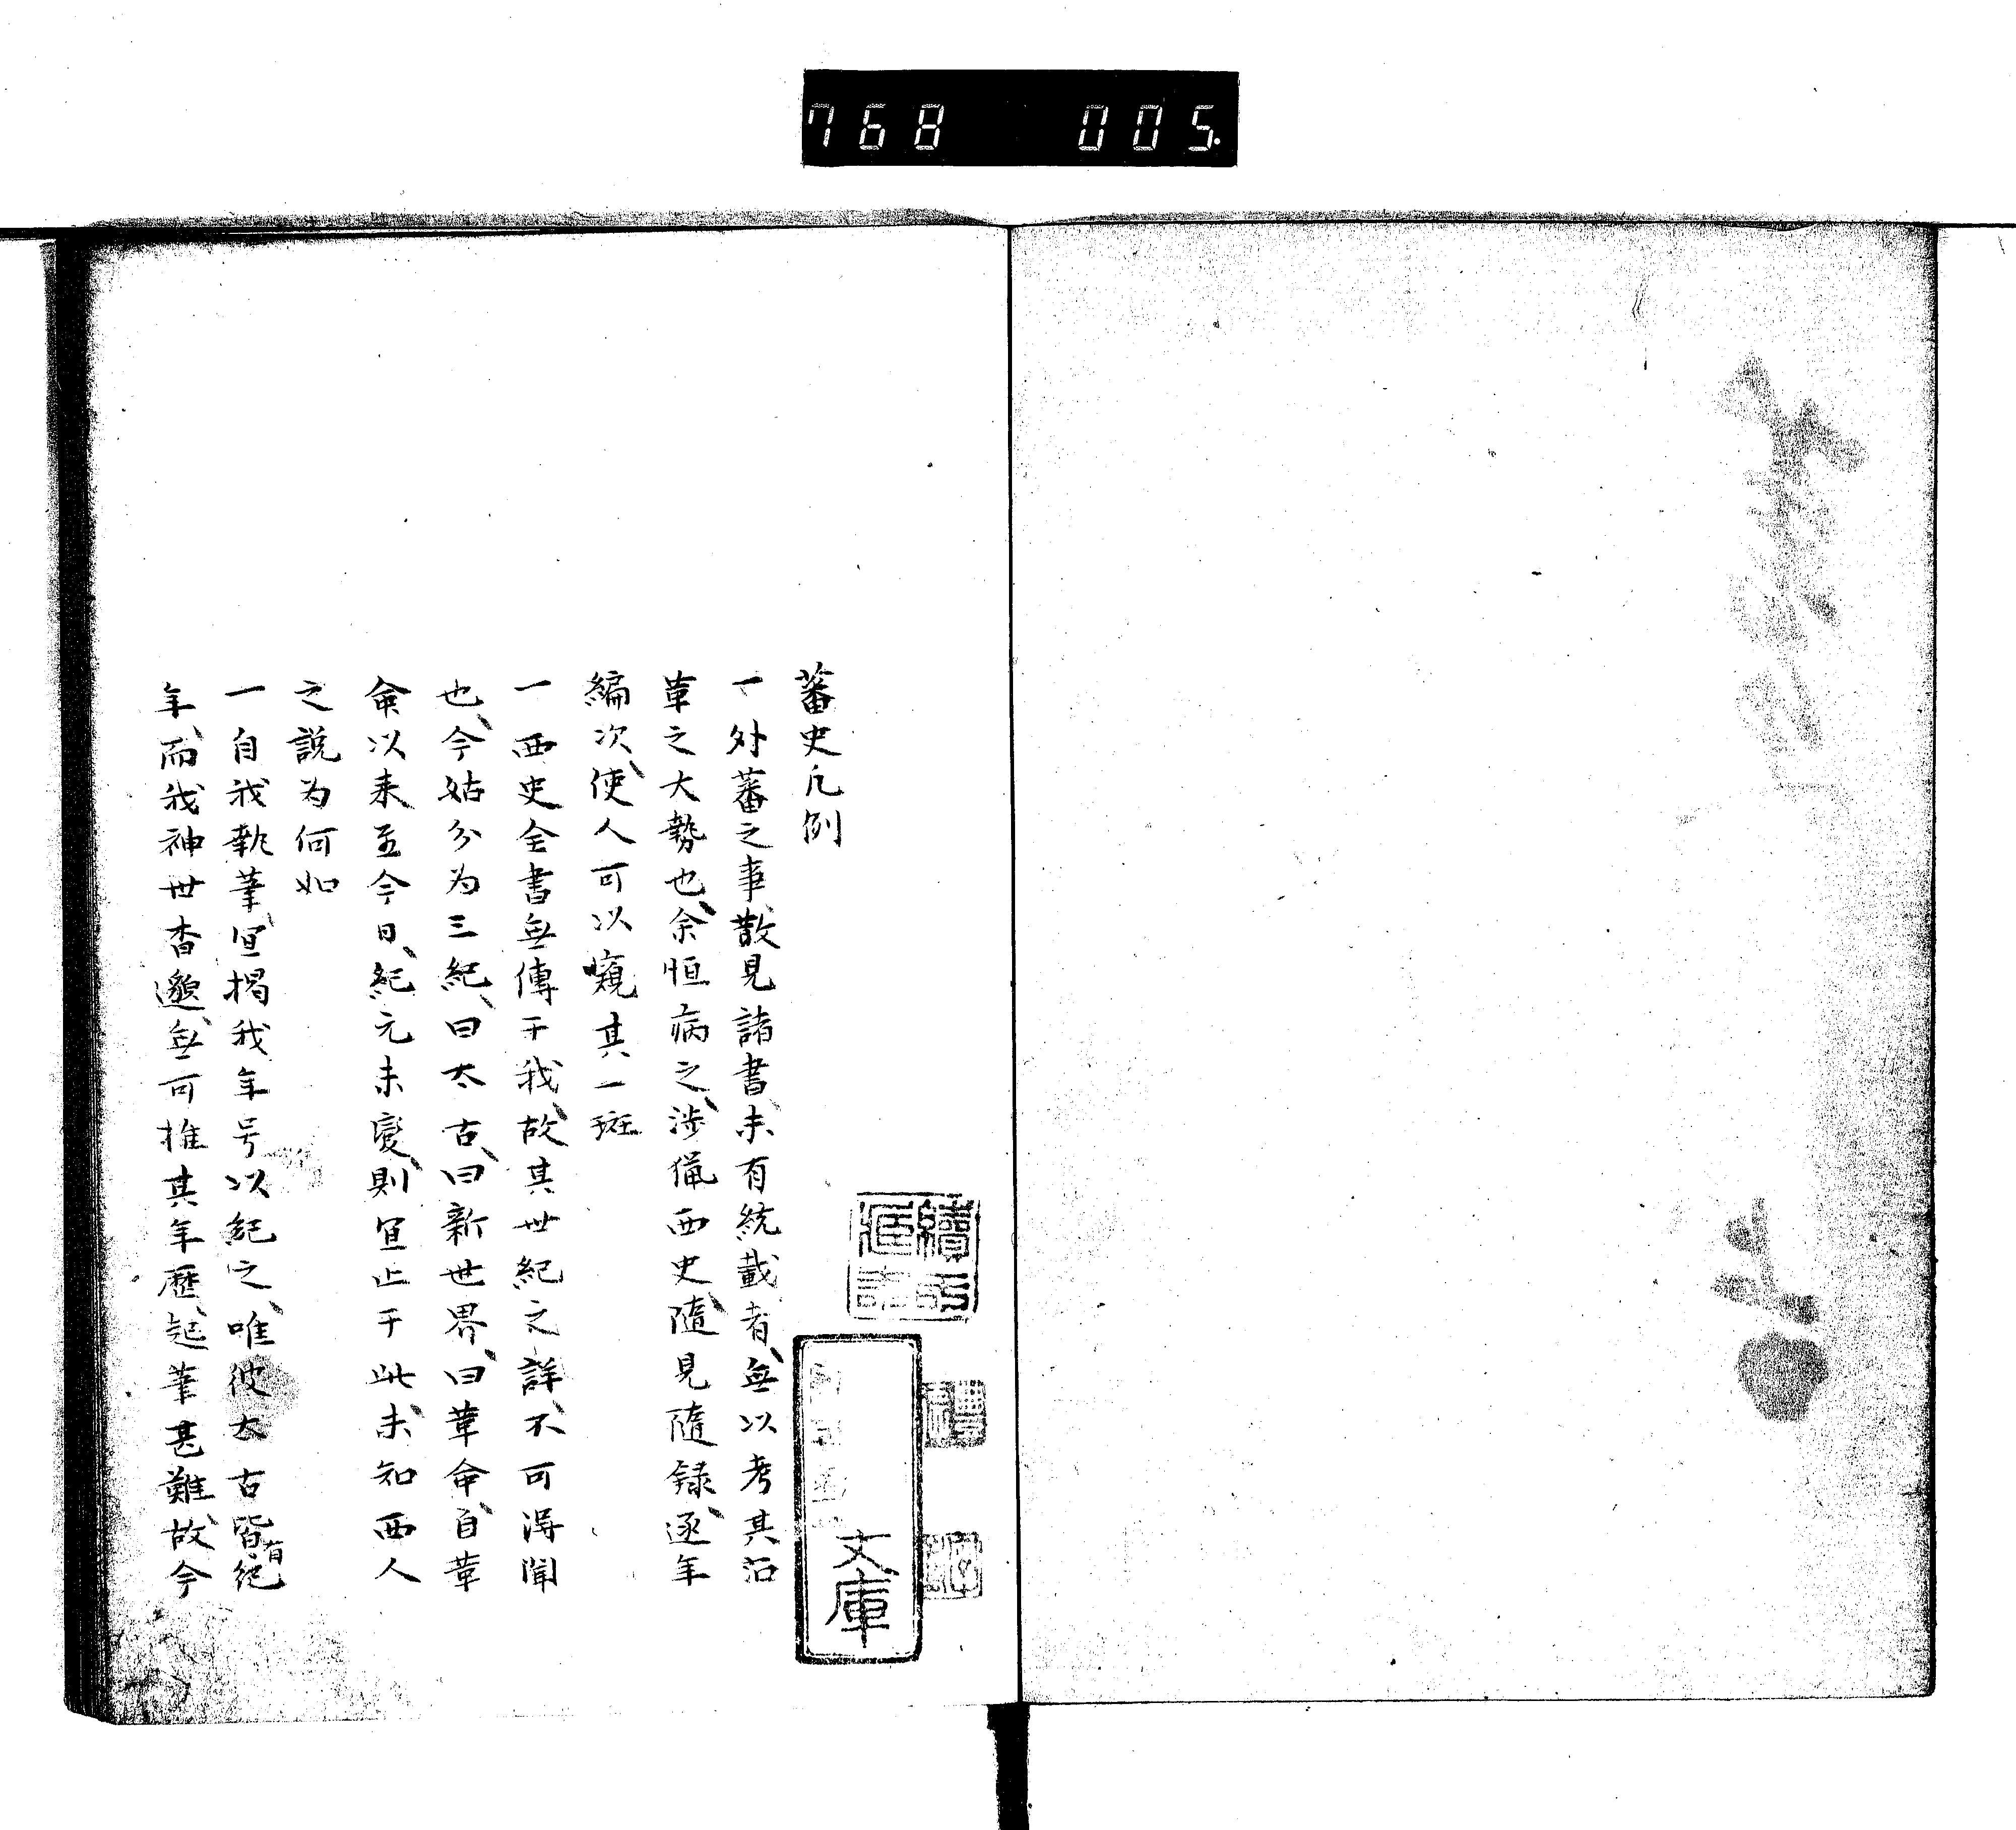 768 005.
蕃史凡例
一外蕃之事、散見諸書、未有統載者、無以考其沿
革之大勢也、余恒病之、涉獵西史、隨見隨録、逐年
編次、使人可以窺其一斑
一西史全書無傳于我、故其世紀之詳、不可得聞
也、今姑分为三紀、曰太古、曰新世界、曰革命、自革
命以来至今日、紀元未變、則宜止于此、未知西人
之說为何如
一自我執筆、宜揭我年号以紀之、唯彼太古皆有紀
年、而我神世杳邈、無可推其年歷、起筆甚難、故今
文庫